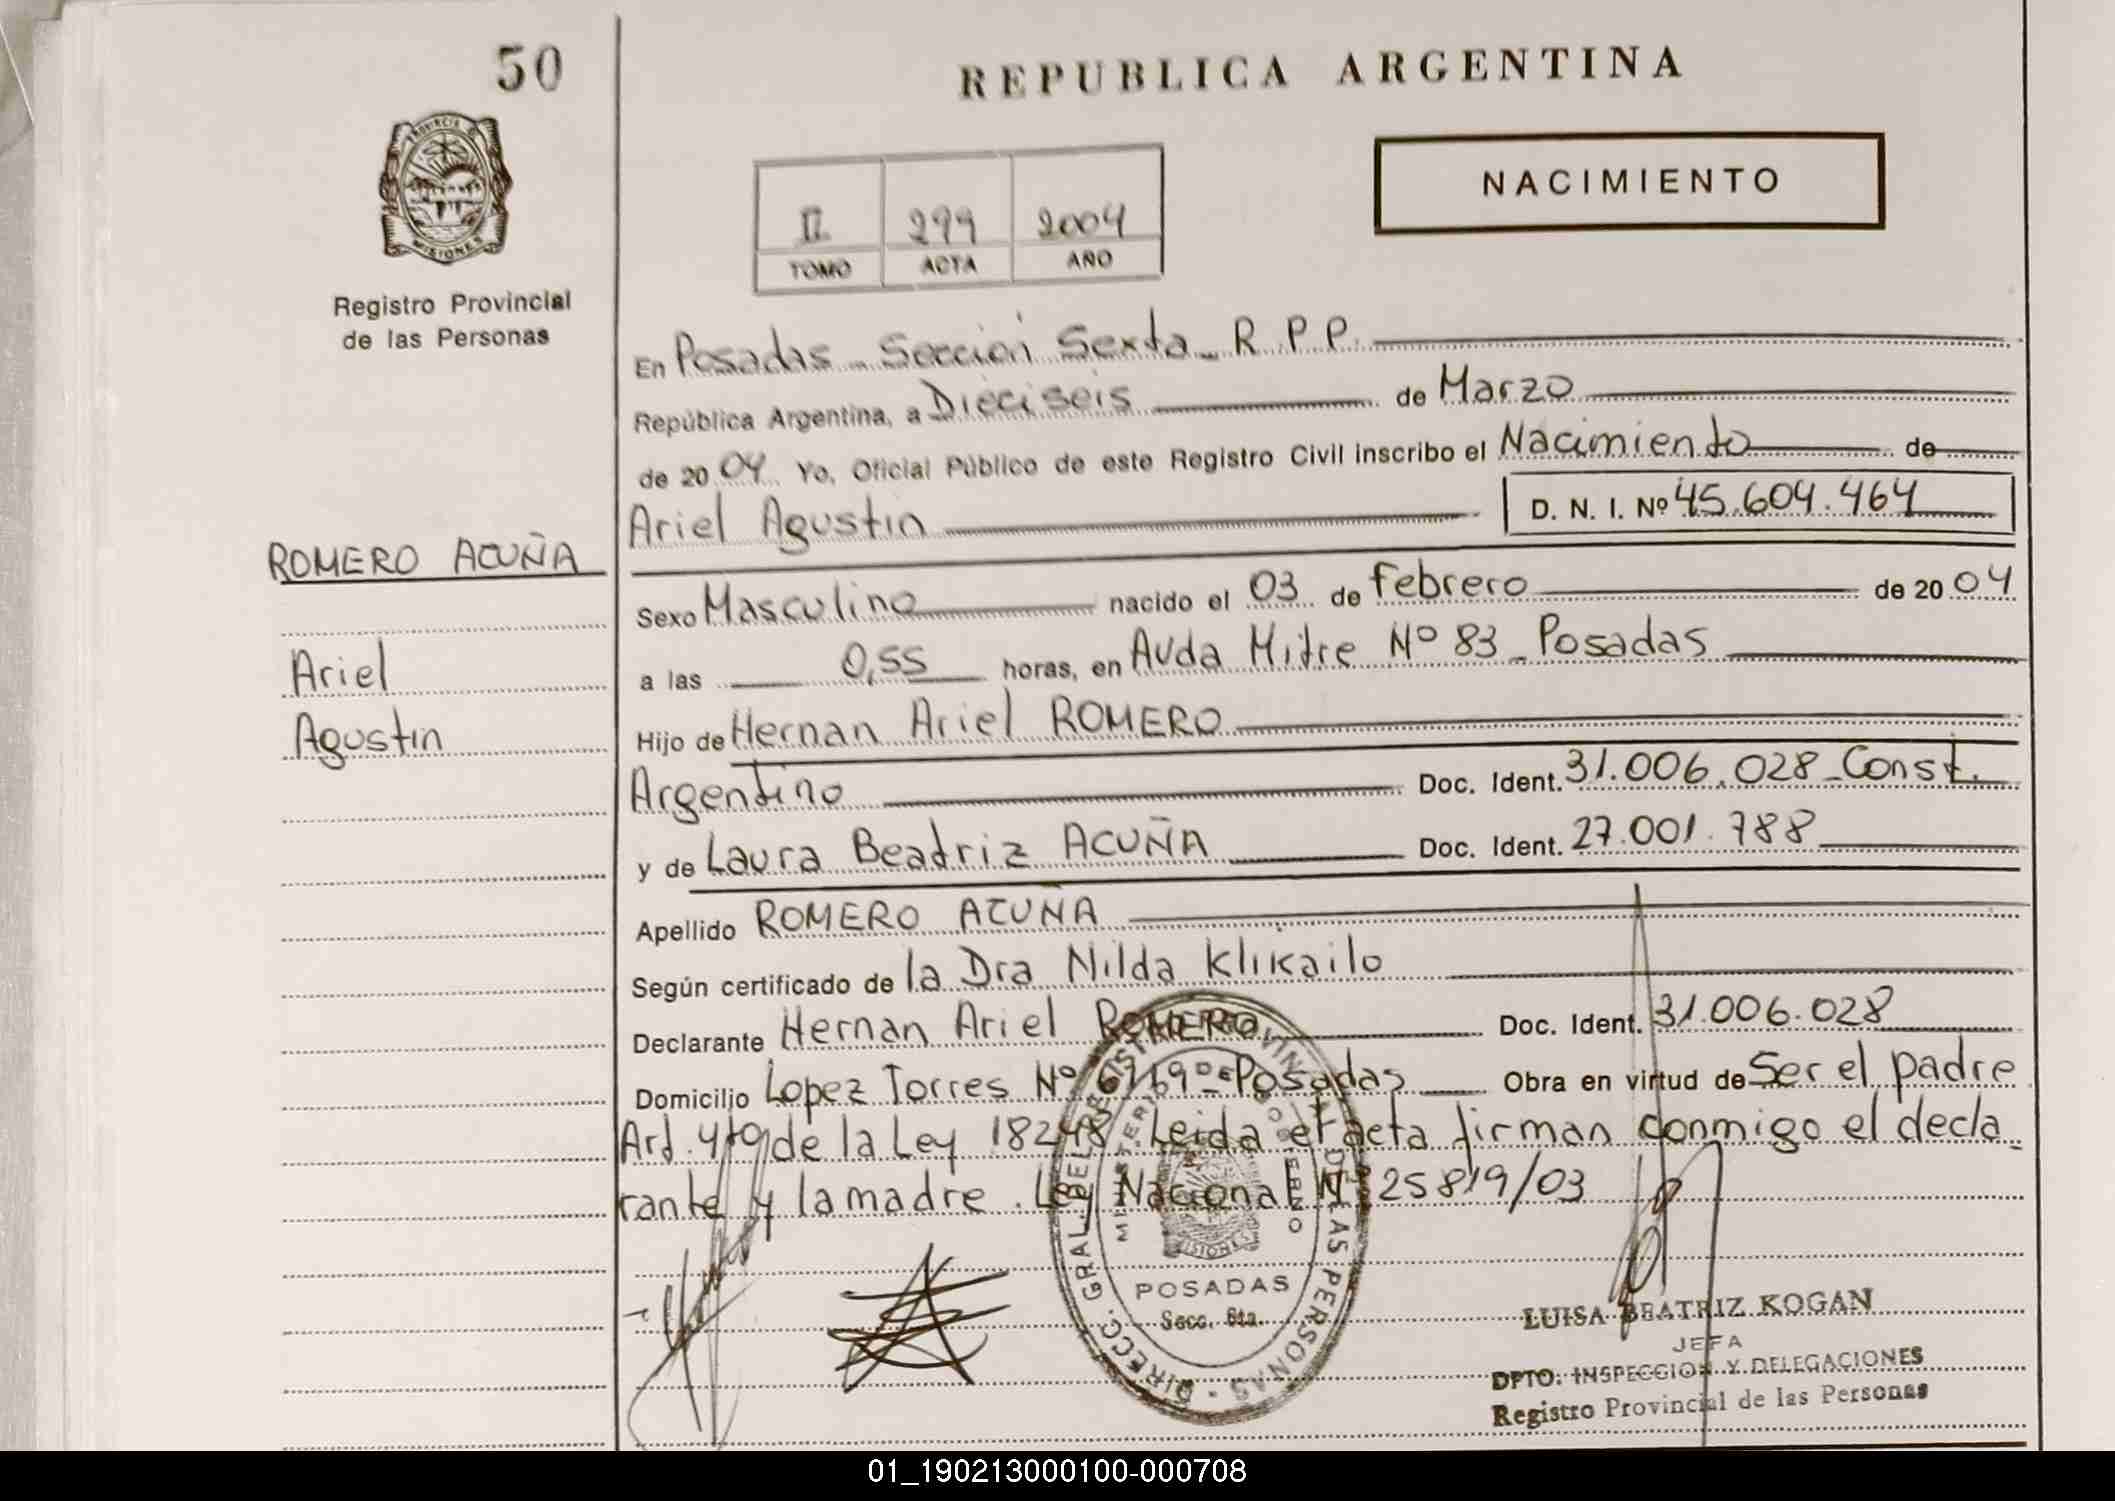 50
REPUBLICA ARGENTINA
PROVINCIA DE
MISIONES
NACIMIENTO
II 299 2004
TOMO ACTA AÑO
Registro Provincial
de las Personas
En Posadas - Sección Sexta - R.P.P.
República Argentina, a Dieciseis de Marzo
de 2004 Yo, Oficial Público de este Registro Civil inscribo el Nacimiento de
Ariel Agustin D. N. I. Nº 45.604.464
ROMERO ACUÑA
Sexo Masculino nacido el 03 de febrero de 2004
Ariel
a las 0,55 horas, en Avda Mitre Nº 83 - Posadas
Agustin
Hijo de Hernan Ariel ROMERO
Argentino Doc. Ident. 31.006.028 - Const.
y de Laura Beatriz ACUÑA Doc. Ident. 27.001.788
Apellido ROMERO ACUÑA
Según certificado de la Dra Nilda Klikailo
Declarante Hernan Ariel ROMERO Doc. Ident. 31.006.028
Domicilio Lopez Torres Nº Posadas Obra en virtud de Ser el padre
Art. 4 de la Ley 18248. Leida el acta firman conmigo el decla
rante y la madre. Ley Nacional Nº 25819/03
DIRECC. GRAL. DEL REGISTRO PROVINCIAL DE LAS PERSONAS
MINISTERIO DE GOBIERNO
MISIONES
POSADAS
Secc. 6ta.
LUISA BEATRIZ KOGAN
JEFA
DPTO. INSPECCION Y DELEGACIONES
Registro Provincial de las Personas
01_190213000100-000708